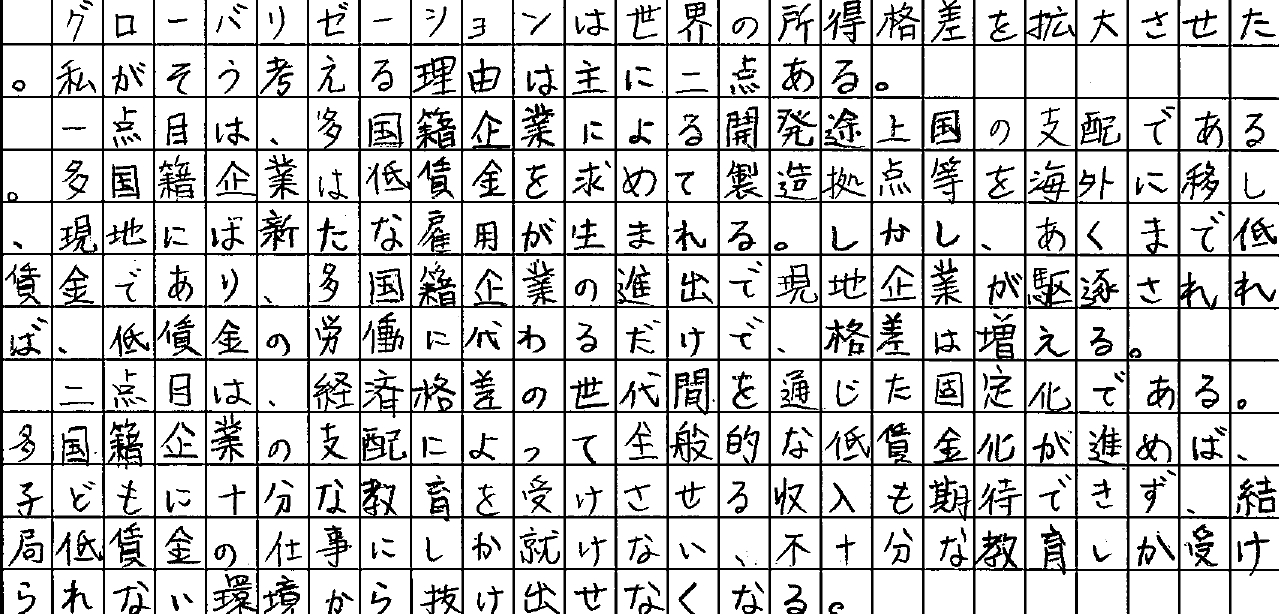 グローバリゼーションは世界の所得格差を拡大させた
。私がそう考える理由は主に二点ある。
一点目は、多国籍企業による開発途上国の支配である
。多国籍企業は低賃金を求めて製造拠点等を海外に移し
、現地には新たな雇用が生まれる。しかし、あくまで低
賃金であり、多国籍企業の進出で現地企業が駆逐されれ
ば、低賃金の労働に代わるだけで、格差は増える。
二点目は、経済格差の世代間を通じた固定化である。
多国籍企業の支配によって全般的な低賃金化が進めば、
子どもに十分な教育を受けさせる収入も期待できず、結
局低賃金の仕事にしか就けない、不十分な教育しか受け
られない環境から抜け出せなくなる。